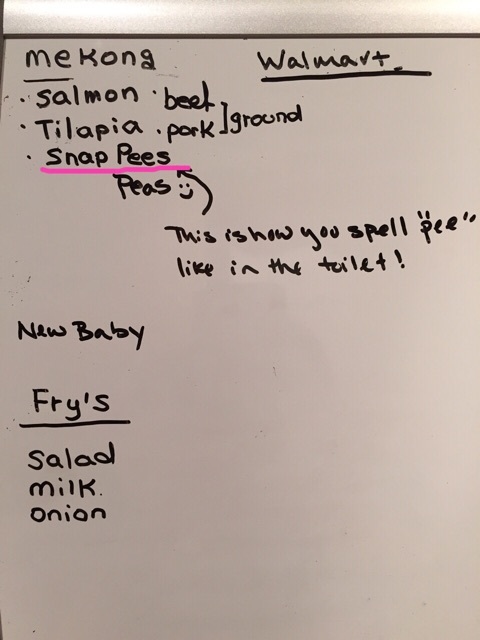 meKong
Walmart
· Salmon · beef
· Tilapia . pork ] ground
· Snap Pees
Peas :)
This is how you spell "pee"
like in the toilet!
New Baby
Fry's
Salad
milk.
onion